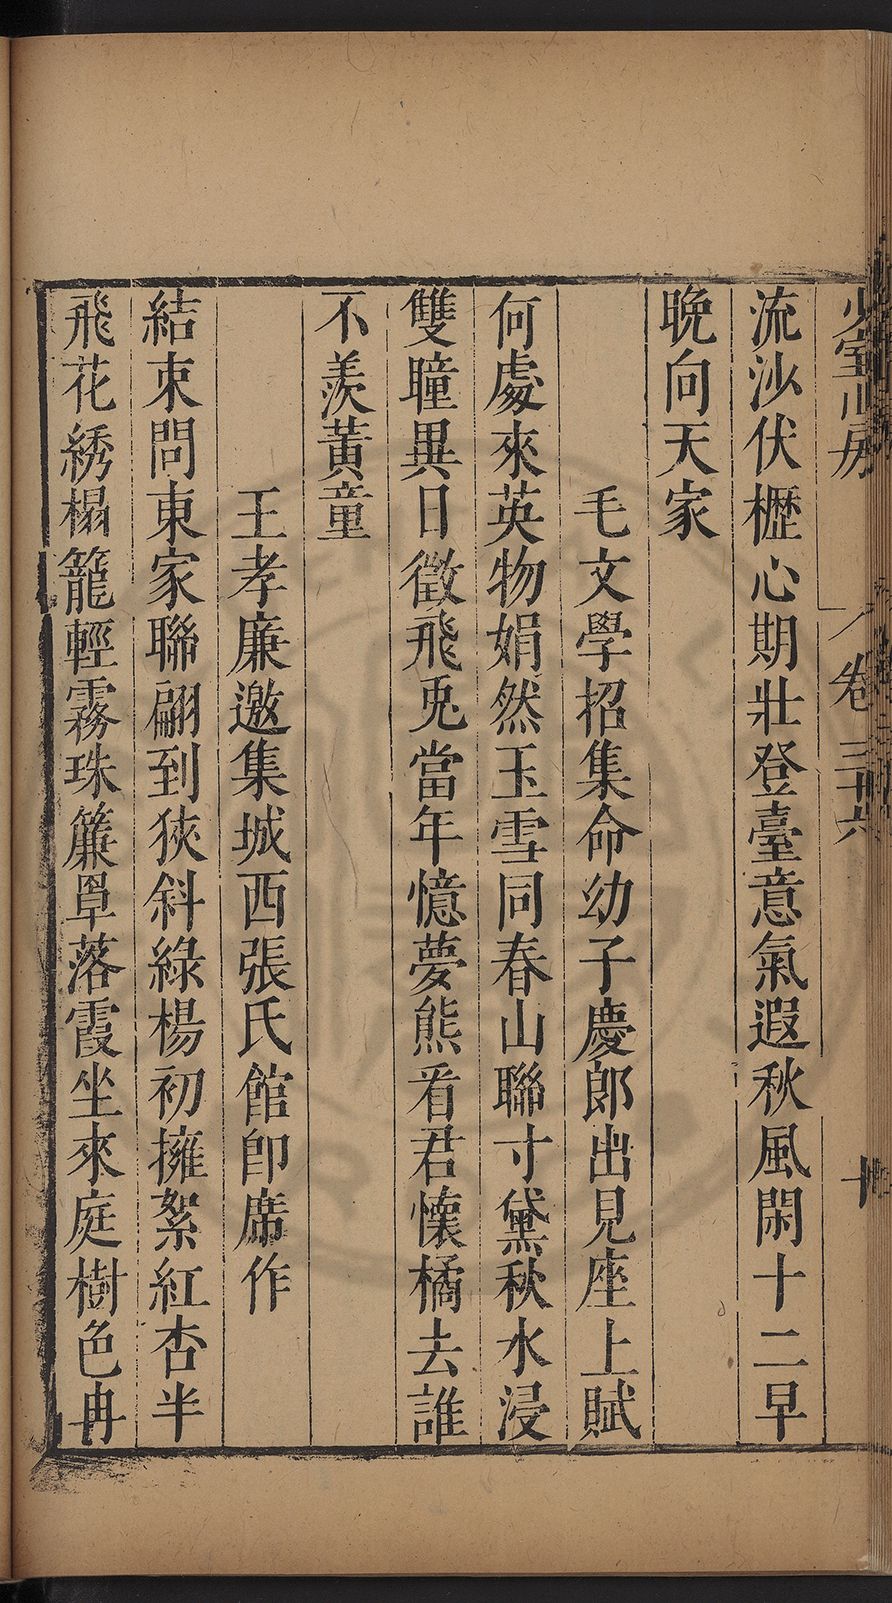 少室山房 卷三十六 十
流沙伏櫪心期壯登臺意氣遐秋風閑十二早
晚向天家
毛文學招集命幼子慶郎出見座上賦
何處來英物娟然玉雪同春山聯寸黛秋水浸
雙瞳異日徵飛兎當年憶夢熊看君懷橘去誰
不羨黃童
王孝廉邀集城西張氏館即席作
結束問東家聯翩到狹斜綠楊初擁絮紅杏半
飛花綉榻籠輕霧珠簾罩落霞坐來庭樹色冉